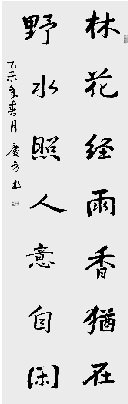 林花经雨香猶在
野水照人意自闲
年春月